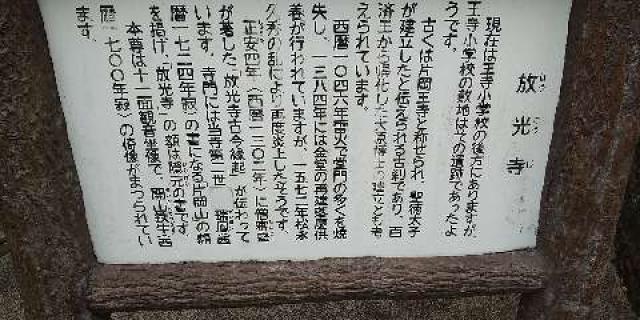 放光寺
現在は王寺小学校の後方にありますが、
王寺小学校の敷地は寺の遺跡であったよ
うです。
古くは片岡王寺と称せられ、聖徳太子
が建立したと伝えられる古刹であり、百
済王から帰化した大原博士の建立とも考
えられています。
西暦一〇四六年雷火で堂門の多くを焼
失し、一三八四年には金堂の再建落慶供
養が行われていますが、一五七二年松永
久秀の乱により再度炎上したそうです。
正安四年（西暦一三〇二年）に僧
が著した「放光寺古今縁起」が伝わって
います。寺門には当寺第二世
暦一七二四年寂）の書になる片岡山の額
を掲げ、「放光寺」の額は隠元の書です。
本尊は十一面観音坐像で、西
暦一七〇〇年寂）の倚像がまつられてい
ます。